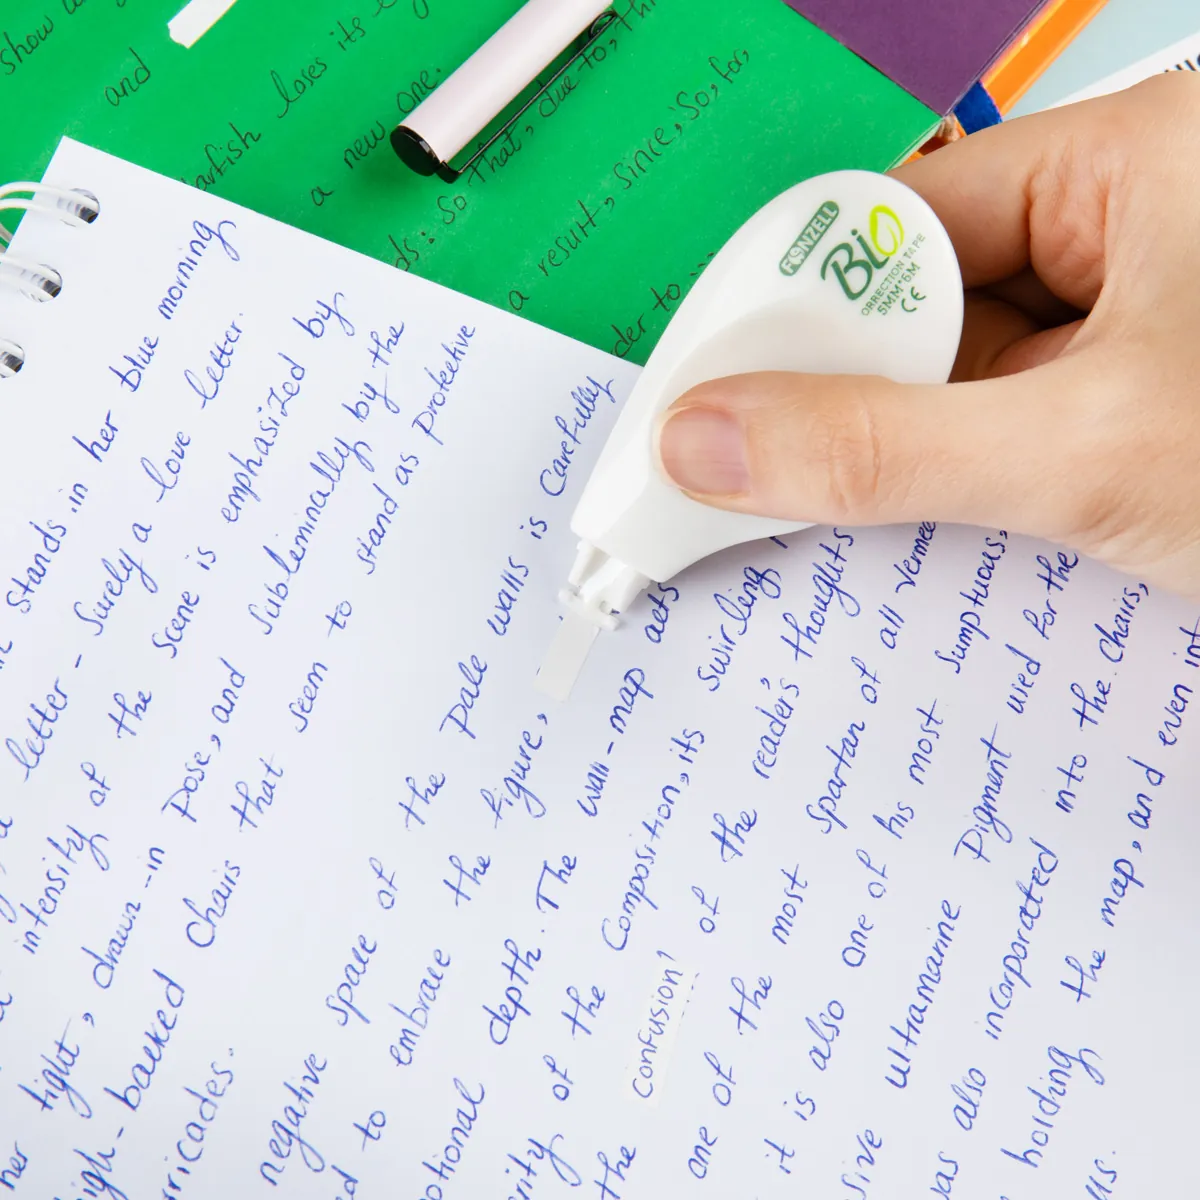 show
and
arfish loses its
a new one.
ds: So that, due to, th
a result, since, So, for,
der to
FONZELL
BiO
ORRECTION TAPE
5MM*6M
CE
Stands in her blue morning
letter - Surely a love letter.
intensity of the scene is emphasized by
her tight, drawn-in Pose, and Subleminally by the
igh-backed chairs that seem to stand as protective
rricades.
negative space of the Pale walls is carefully
ed to embrace the figure,
otional depth. The wall-map acts
rity of the Composition, its swirling
the confusion of the reader's thoughts
one of the most Spartan of all Vermee
it is also one of his most Sumptuous,
sive ultramarine Pigment used for the
was also incorporated into the chairs,
holding the map, and even int
us.